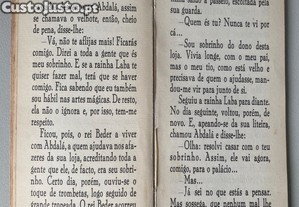 CustoJusto.pt
Abdalá, assim
se chamava o velhote, então, cheio
de pena, disse-lhe:
—Vá, não te aflijas mais! Ficarás
comigo. Direi a toda a gente que és
meu sobrinho. E se a rainha Laba te
quiser fazer mal, terá que se haver
comigo. Fica sabendo que eu também
sou hábil nas artes mágicas. De resto,
ela não o ignora e, por isso, tem-me
respeito.
Ficou, pois, o rei Beder a viver
com Abdalá, a quem ajudava nos afazeres
da sua loja, acreditando toda a
gente que ele, de facto, era seu sobrinho.
Certo dia, porém, ouviu-se o
toque de trombetas, logo seguido de
grande tropeada. O rei Beder correu
a passeio, escoltada pela
sua guarda.
—Quem és tu? Nunca te vi por
cá...
—Sou sobrinho do dono desta
loja. Vivia longe, com o meu pai,
mas o meu tio, como está velho e
precisa de quem o ajudasse, mandou-me
Seguiu a rainha Laba para diante.
No dia seguinte, voltou, porém, de
novo. E, apeando-se da sua liteira,
chamou Abdalá e disse-lhe:
—Olha: resolvi casar com o teu
sobrinho. Assim, ele vai agora,
comigo, para o palácio...
—Mas...
—Já sei no que estás a pensar.
Mas sossega, que nenhum mal lhe